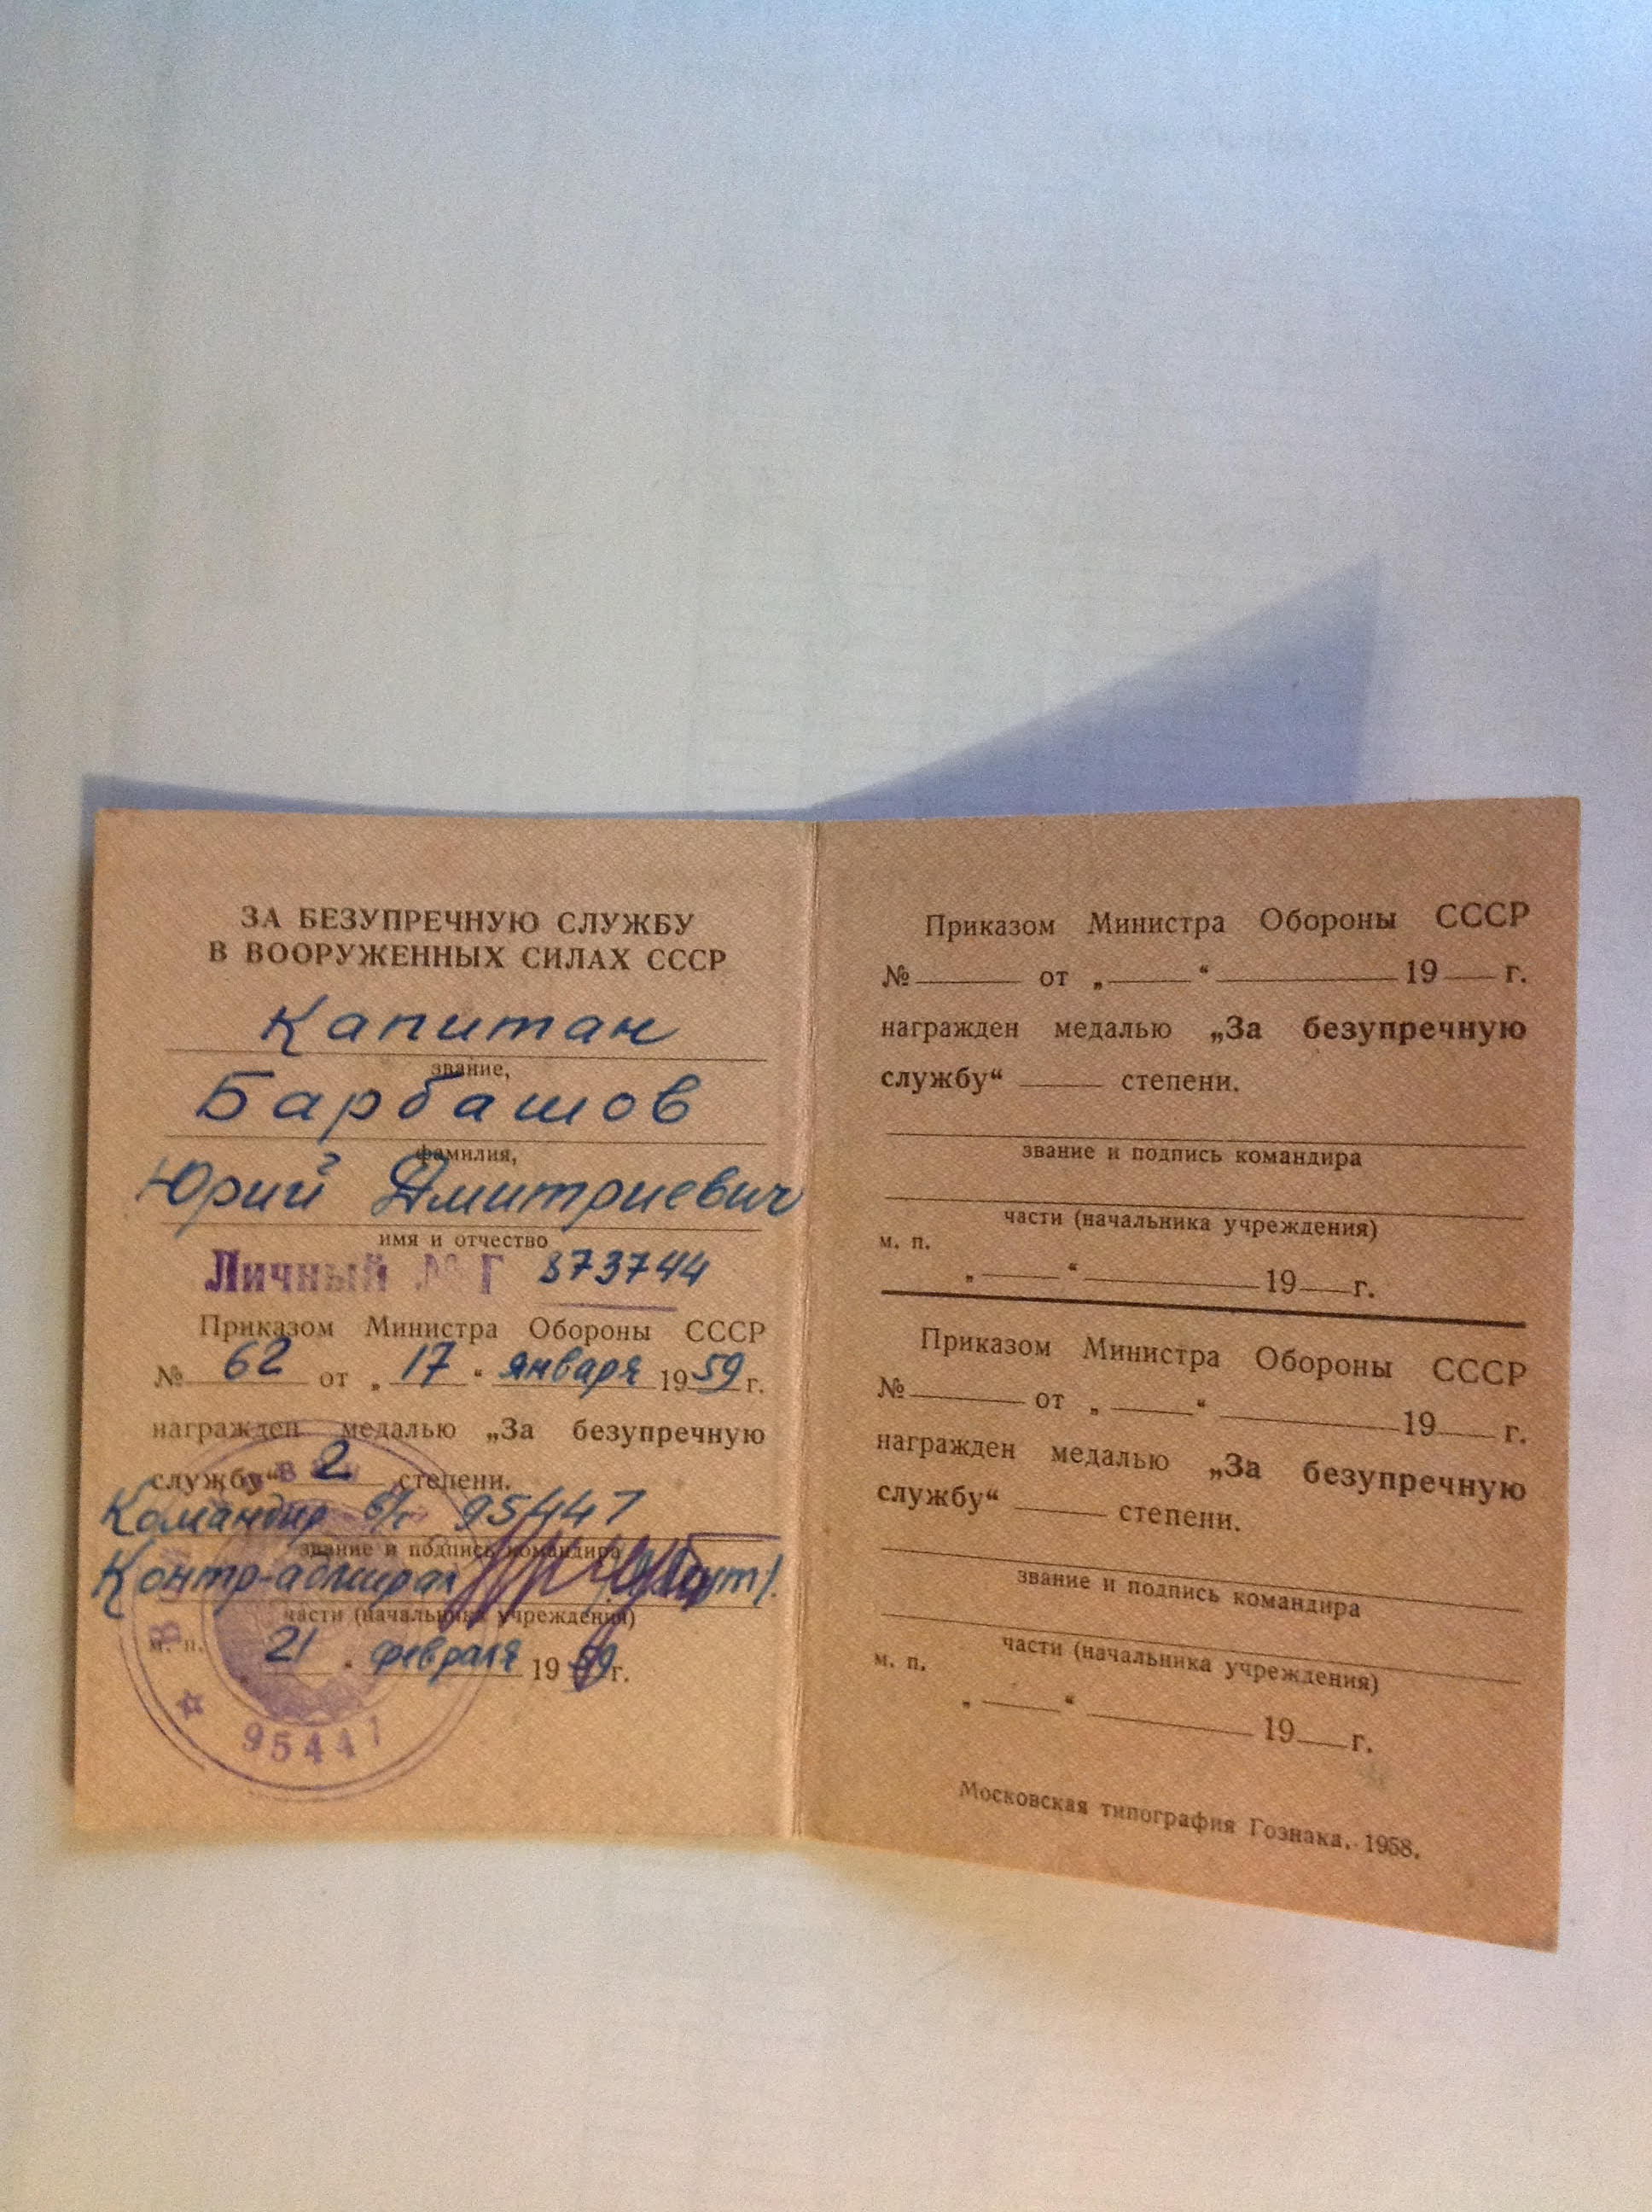 ЗА БЕЗУПРЕЧНУЮ СЛУЖБУ
В ВООРУЖЕННЫХ СИЛАХ СССР
Капитан
звание,
Барбашов
фамилия,
Юрий Дмитриевич
имя и отчество
Личный № Г 873744
Приказом Министра Обороны СССР
№ 62 от „ 17 “ января 1959 г.
награжден медалью „За безупречную
службу“ 2 степени.
Командир в/ч 95447
звание и подпись командира
Контр-адмирал
части (начальника учреждения)
м. п.
„ 21 “ февраля 1959 г.
95447
Приказом Министра Обороны СССР
№ от „ “ 19 г.
награжден медалью „За безупречную
службу“ степени.
звание и подпись командира
части (начальника учреждения)
м. п.
„ “ 19 г.
Приказом Министра Обороны СССР
№ от „ “ 19 г.
награжден медалью „За безупречную
службу“ степени.
звание и подпись командира
части (начальника учреждения)
м. п.
„ “ 19 г.
Московская типография Гознака. 1958.